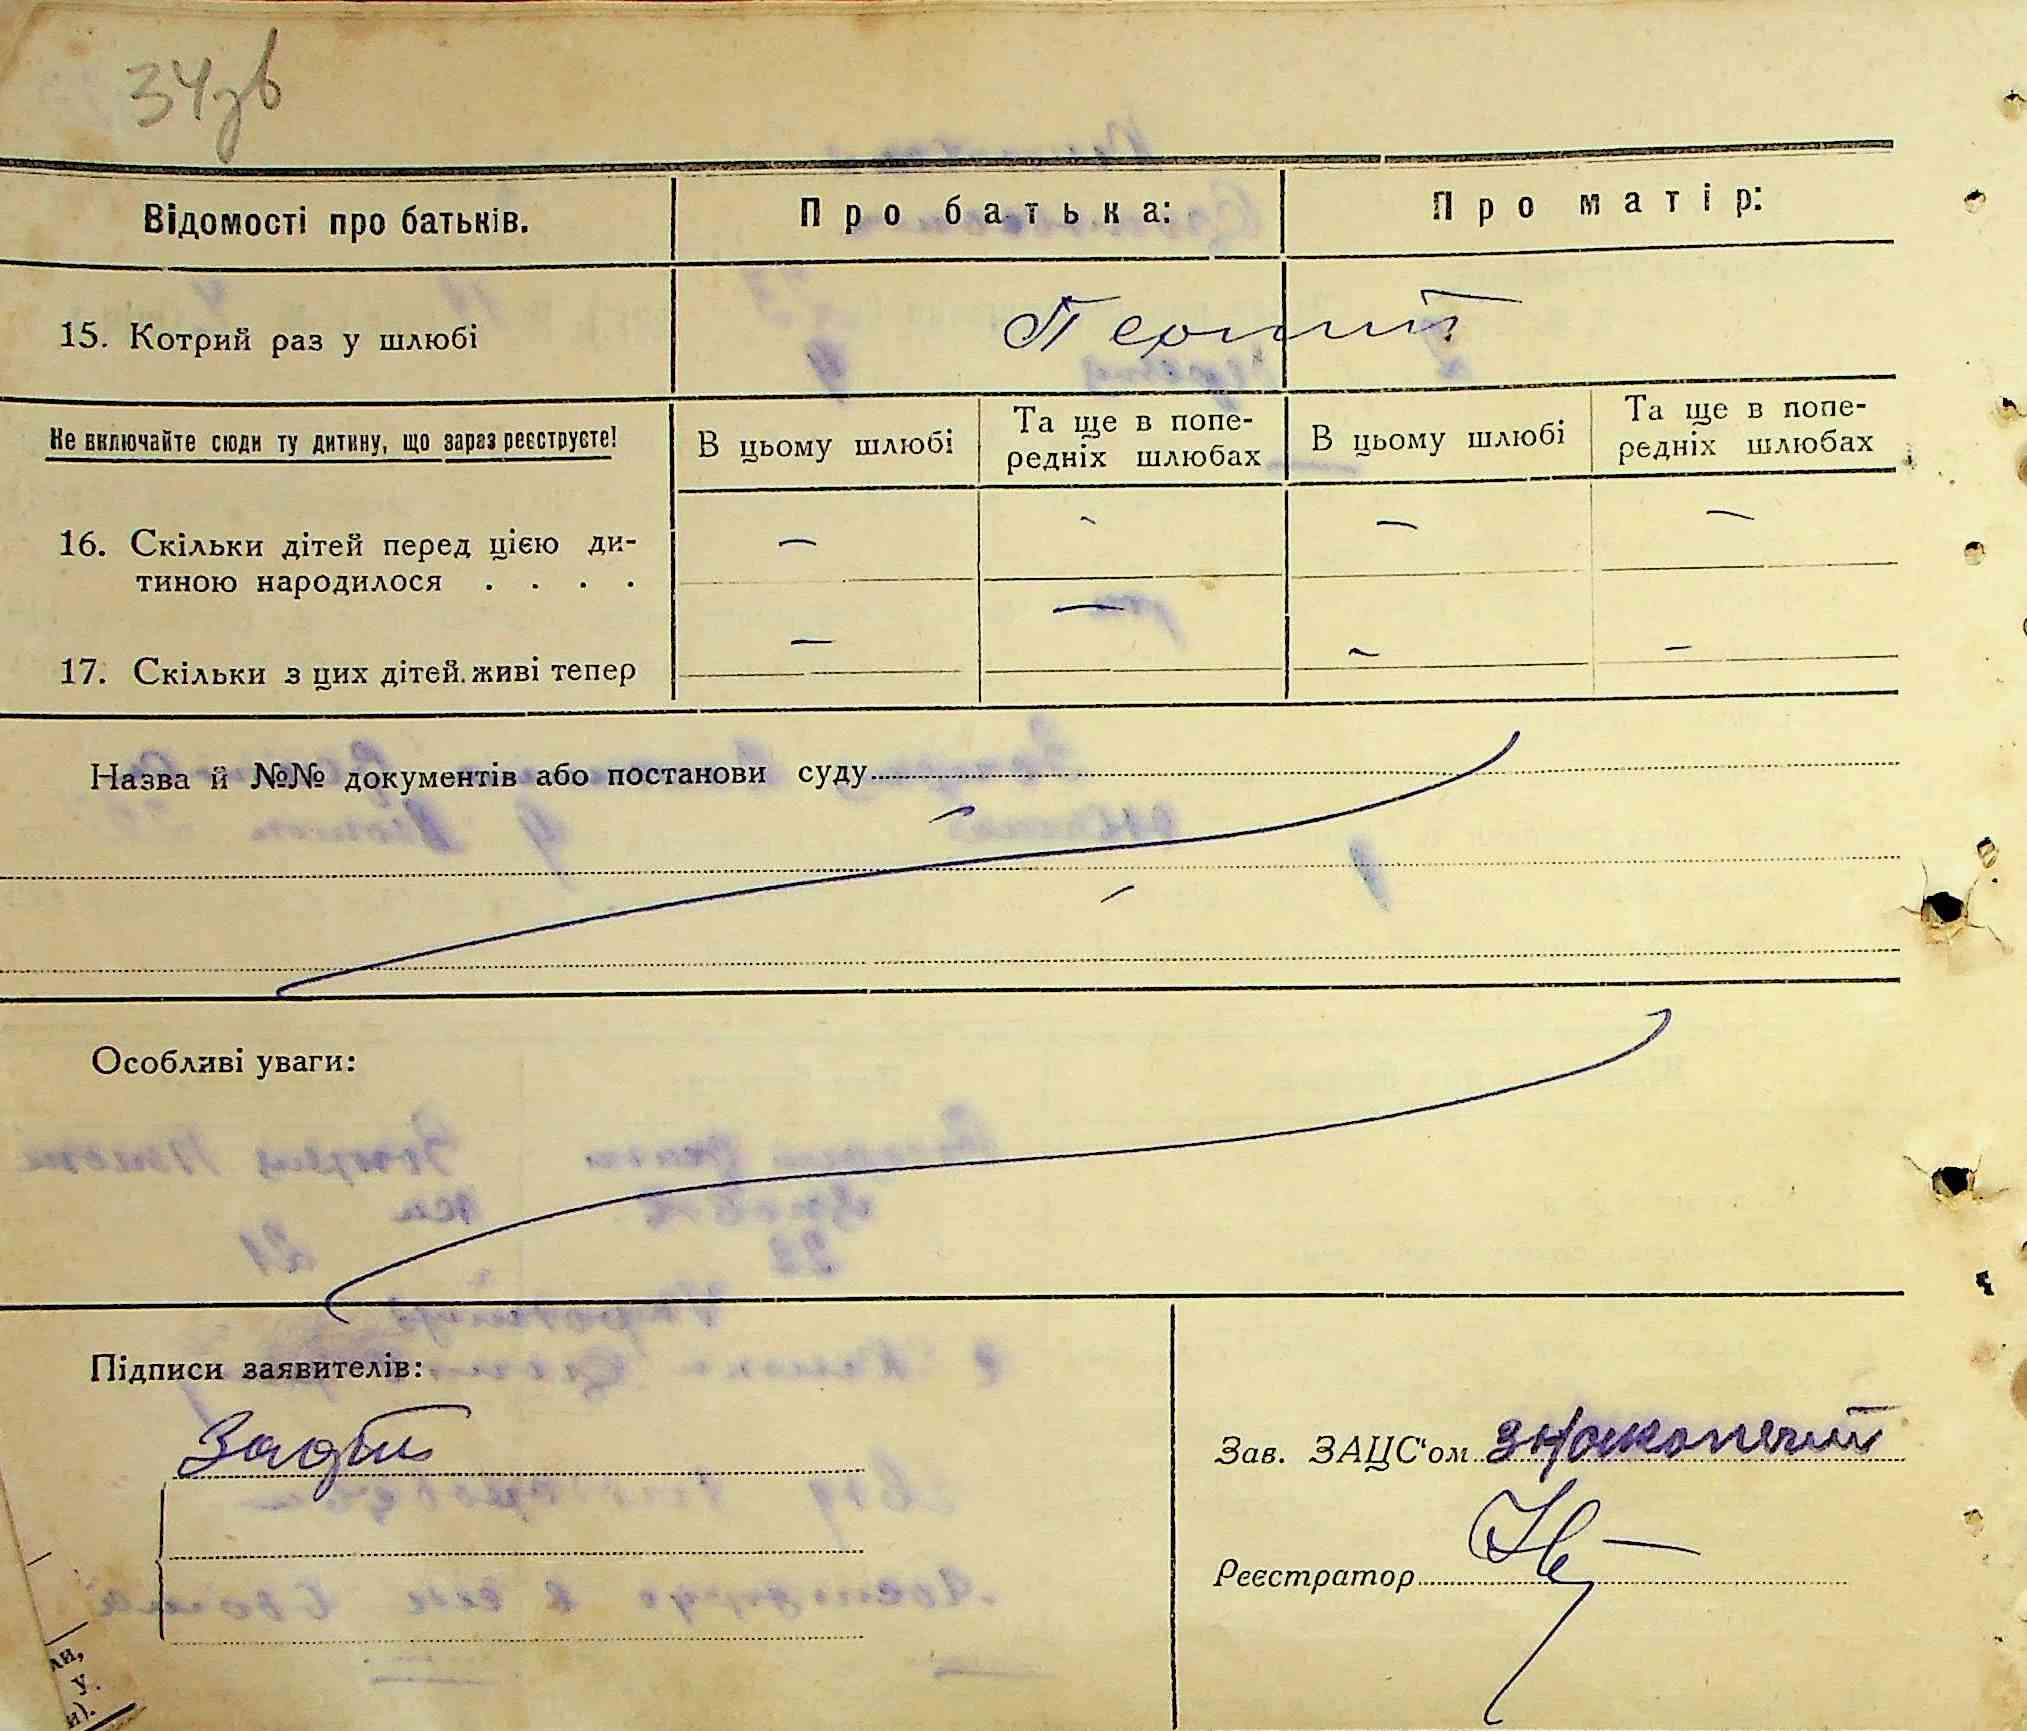 34зв
Відомості про батьків.
Про батька:
Про матір:
15. Котрий раз у шлюбі
Перший
Не включайте сюди ту дитину, що зараз реєструєте!
В цьому шлюбі
Та ще в попе-
редніх шлюбах
В цьому шлюбі
Та ще в попе-
редніх шлюбах
16. Скільки дітей перед цією ди-
тиною народилося . . . .
— - — —
17. Скільки з цих дітей живі тепер
— — — —
Назва й №№ документів або постанови суду
Особливі уваги:
Підписи заявителів:
Зав. ЗАЦС'ом
Реєстратор
ли,
у.
и).